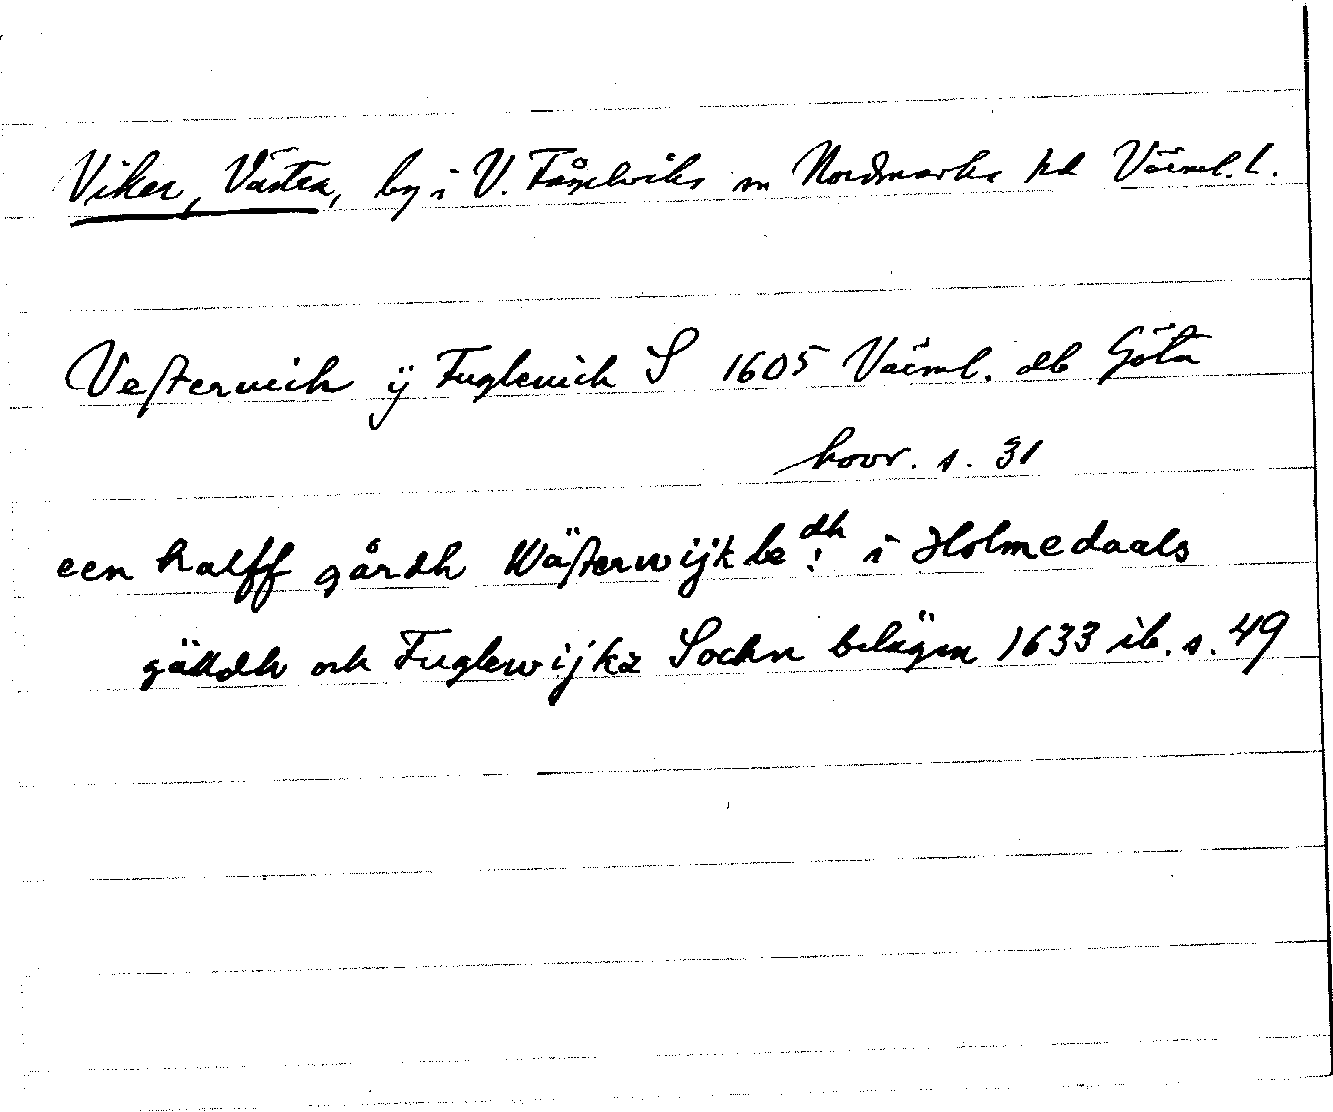 Viker, Västra, by i V. Fågelviks sn Nordmarks hd Värml. l.
Vesteruich ÿ Fugleuich S 1605 Värml. db Göta
hovr. s. 31
een halff gårdh Wästerwijk be:dh i Holmedaals
gälldh och Fuglewijkz Sochn belägen 1633 ib. s. 49